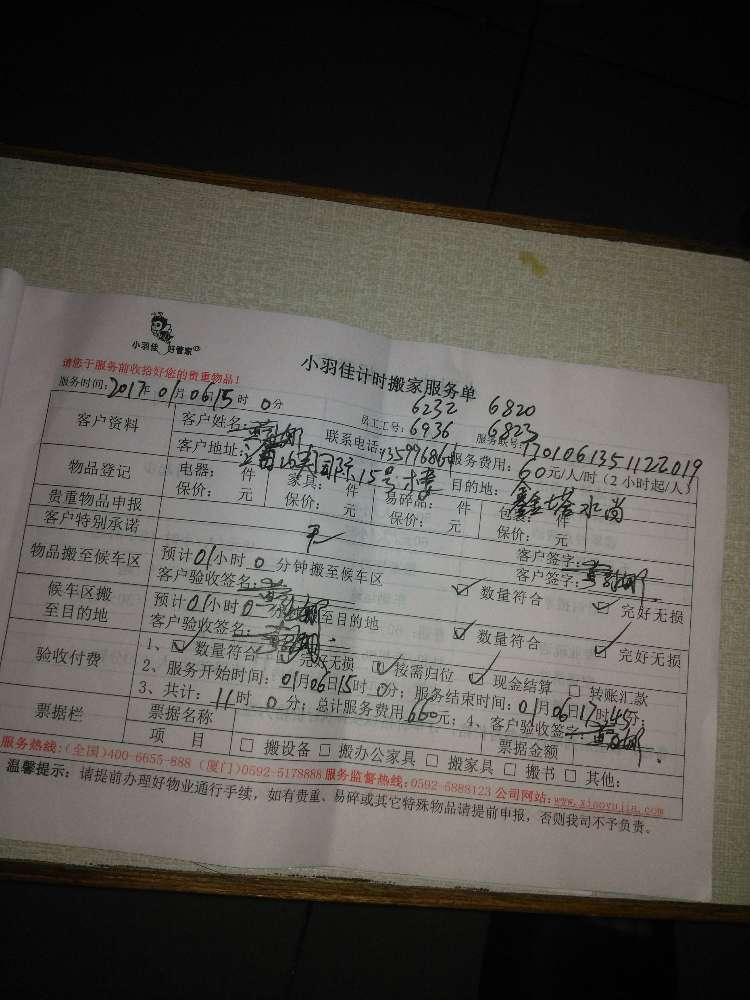 小羽佳 好管家
小羽佳计时搬家服务单
请您于服务前收拾好您的贵重物品!
服务时间: 2017年 01月 06日 15时 0分
员工工号: 6232 6820
6936 6823
服务联号: 1701061351122019
客户资料 客户姓名: 联系电话: 服务费用: 60元/人/时(2小时起/人)
客户地址: 国际15号楼 目的地: 鑫塔水尚
物品登记 电器: 件 家具: 件 易碎品: 件 包装: 件
保价: 元 保价: 元 保价: 元 保价: 元
贵重物品申报 客户签字:
客户特别承诺 客户签字:
物品搬至候车区 预计01小时 0 分钟搬至候车区 ☑ 数量符合 ☑ 完好无损
客户验收签名:
候车区搬至目的地 预计01小时0分钟搬至目的地 ☑ 数量符合 ☑ 完好无损
客户验收签名:
验收付费 1、☑ 数量符合 ☑ 完好无损 ☑ 按需归位 ☑ 现金结算 □ 转账汇款
2、服务开始时间: 01月06日15时0分; 服务结束时间: 01月06日17时45分;
3、共计: 11时 0分; 总计服务费用660元; 4、客户验收签字:
票据栏 票据名称 票据金额
项目 □ 搬设备 □ 搬办公家具 □ 搬家具 □ 搬书 □ 其他:
服务热线:(全国)400-6655-888 (厦门)0592-5178888 服务监督热线:0592-5888123 公司网站:www.xiaoyujia.com
温馨提示: 请提前办理好物业通行手续, 如有贵重、易碎或其它特殊物品请提前申报, 否则我司不予负责。